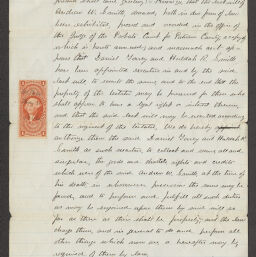 Andrew W. Smith deceased, both in due form of law
been exhibited, proved and recorded in the office of
the Judge of the Probate Court for Putnam County, a copy of
which is hereto annexed; and inasmuch as it ap
pears that Daniel Yancy and Huldah R. Smith
have been appointed executors in and by the said
last will to execute the same, and to the end that the
property of the testator may be preserved for those who
shall appear to have a legal right or interest therein,
and that the said last will may be executed according
to the request of the testator, We do hereby
authorize them the said Daniel Yancy and Huldah R.
Smith as such executors, to collect and secure all and
singular, the goods and chattels rights and credits
which were of the said Andrew W. Smith at the time of
his death, in whosoever possession the same may be
found, and to perform and fulfill all such duties
as may be enjoined upon them by said will so
far as there shall be property, and the law
charge them, and in general to do and perform all
other things which now are or hereafter may be
required of them by law